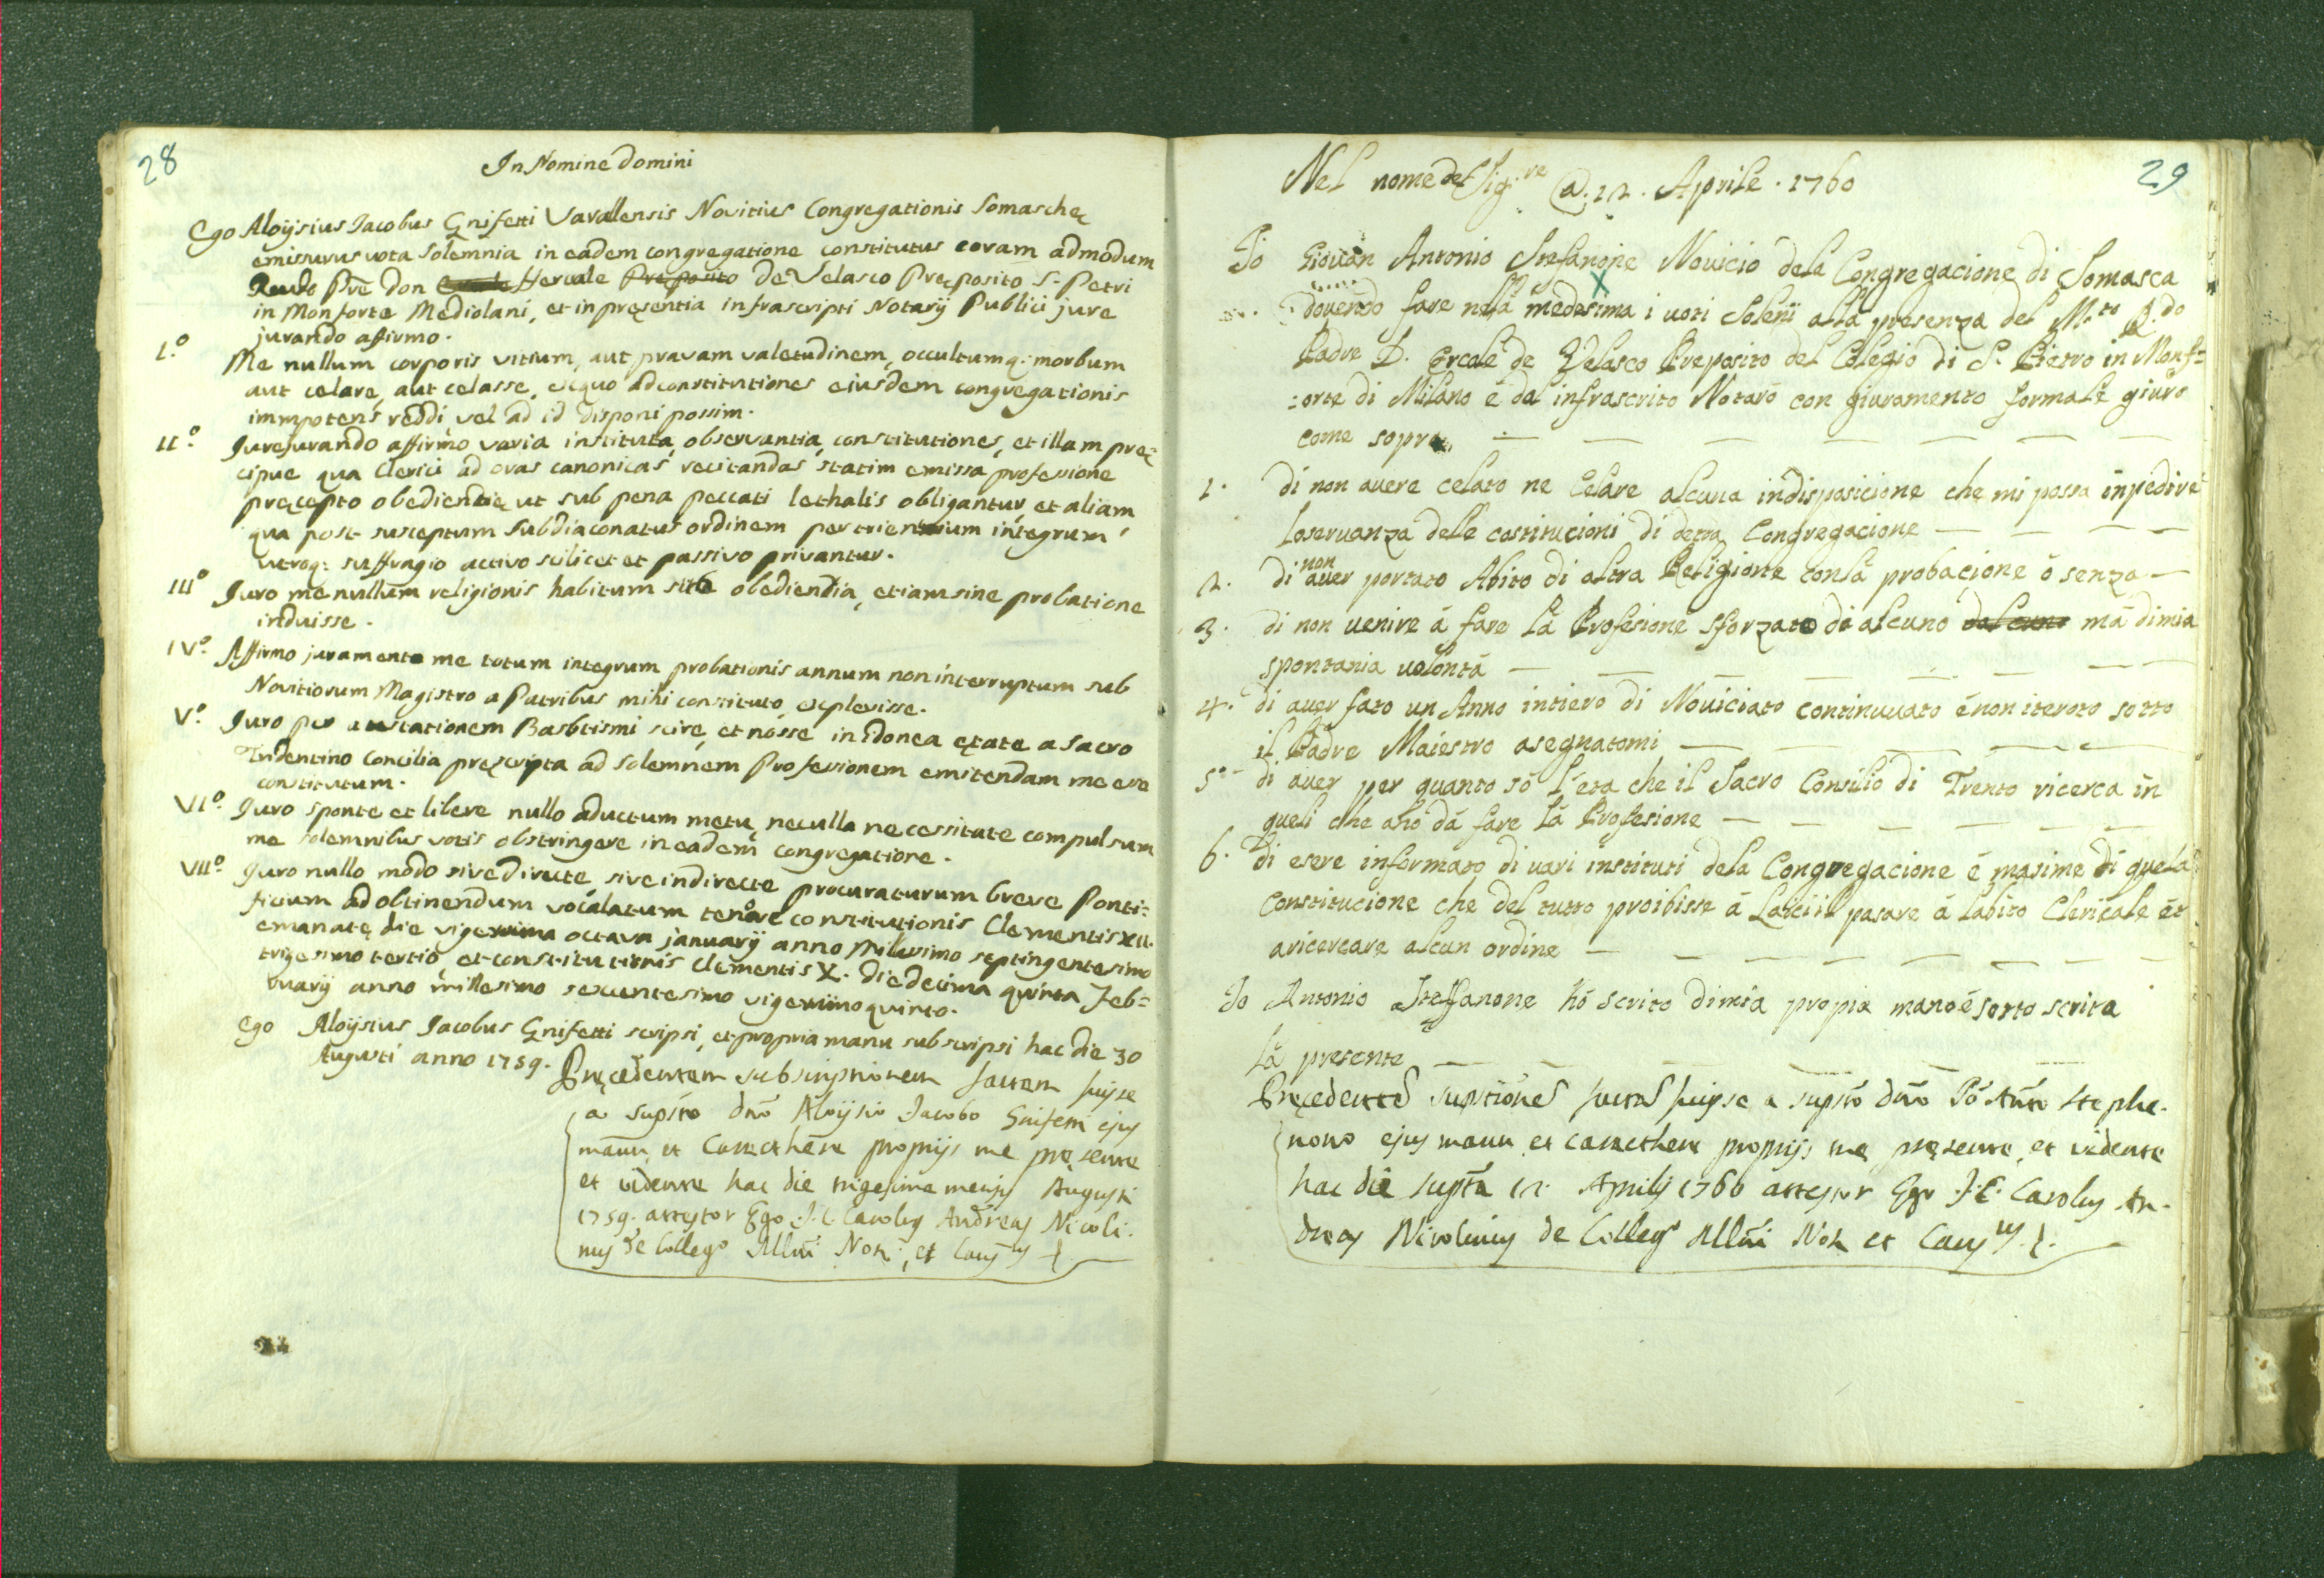 28
In Nomine Domini
Ego Aloÿsius Jacobus Gnifetti Varallensis Novitius Congregationis Somaschę
emissurus vota solemnia in eadem congregatione constitutus coram admodum
Rendo Pre don Hercule Preposito De Velasco Pręposito S. Petri
in Monforte Mediolani, et in pręsentia infrascripti Notarÿ Publici jure
jurando affirmo.
I.º Me nullum corporis vitium, aut pravam valetudinem, occultumq: morbum
aut celare, aut celasse, ex quo ad constitutiones eiusdem congregationis
immpotens reddi, vel ad id disponi possim.
II.º Jurejurando affirmo varia instituta, observantia, constitutiones, et illam prę=
cipue qua Clerici ad oras canonicas recitandas statim emissa professione
pręcepto obedientię ut sub pena peccati lethalis obligantur, et aliam
qua post susceptum subdiaconatus ordinem per triennium integrum
utroq: suffragio activo scilicet et passivo privantur.
IIIº Juro me nullum religionis habitum sub obedientia, etiam sine probatione
induisse.
IVº. Affirmo juramento me totum integrum probationis annum non interruptum sub
Novitiorum Magistro a Patribus mihi constituto explevisse.
Vº. Juro per Basbtismi scire, et nosse in idonea ętate a Sacro
Tridentino Concilia pręscripta ad solemnem Professionem emitendam me esse
constitutum.
VIº. Juro sponte et libere nullo aductum metu, nec ulla necessitate compulsum
me solemnibus votis obstringere in eadem congregatione.
VIIº. Juro nullo modo sive directe, sive indirecte procuraturum breve Ponti=
ficium ad obtinendum vocalatum tenore constitutionis Clementis XII.
emanatę die vigesima octava januarÿ anno Milesimo septingentesimo
trigesimo tertio, et constitutionis Clementis X. die decima quinta Feb=
ruarÿ anno millesimo sexcentesimo vigesimo quinto.
Ego Aloÿsius Jacobus Gnifetti scripsi, et propria manu subscripsi hac die 30
Augusti anno 1759.
Pręcedentem subscriptionem factam fuisse
a supsto dno Aloijsio Jacobo Gnifetti ejus
manu, et Carecthere proprijs me pręsente
et vidente hac die trigesima mensis Augusti
1759. attestor Ego J. C. Carolus Andreas Nicoli.
nus de Collego Mlni Not. et Caus
29
Nel nome del Sig.re @. 12. Aprile. 1760
Io Giovan Antonio Stefanone Novicio dela Congregacione di Somasca
dovendo fare nela medesima i voti Soleñi alla presenza del M.to R.do
Padre D. Ercole de Velasco Preposito del Colegio di S. Pietro in Monf=
:orte di Milano é dal infrascrito Notaro con giuramento formale giuro
come sopra
1. di non avere celato ne Celare alcuna indisposicione che mi possa inpedire
loservanza delle costitucioni di detta Congregacione
2. di non aver portato Abito di altra Religione conla probacione ó senza
3. di non venire á fare lá Profesione sforzato di alcuno má dimia
spontania volontá
4. di aver fato un Anno intiero di Noviciato continuvato é non iteroto sotto
il Padre Maiestro asegnatomi
5º di aver per quanto só l'eta che il Sacro Consilio di Trento ricerca in
queli che ano dá fare lá Profesione
6. di esere informato di vari instituti dela Congregacione é masime di quela
Constitucione che del tutto proibisse á Laici il pasare á labito Clericale ét
aricercare alcun ordine
Io Antonio Steffanone hó scrito dimia propia mano é sotto scrita
lá presente
Pręcedentes supstiones factas fuisse a supsto dno Io Anto Stephe.
nono ejus manu, et carecthere proprijs me pręsente, et vidente
hac die supta 12. Aprilis 1760 attestor Ego J. C. Carolus An.
dreas Nicolinus de Collego Mlni Not. et Caus